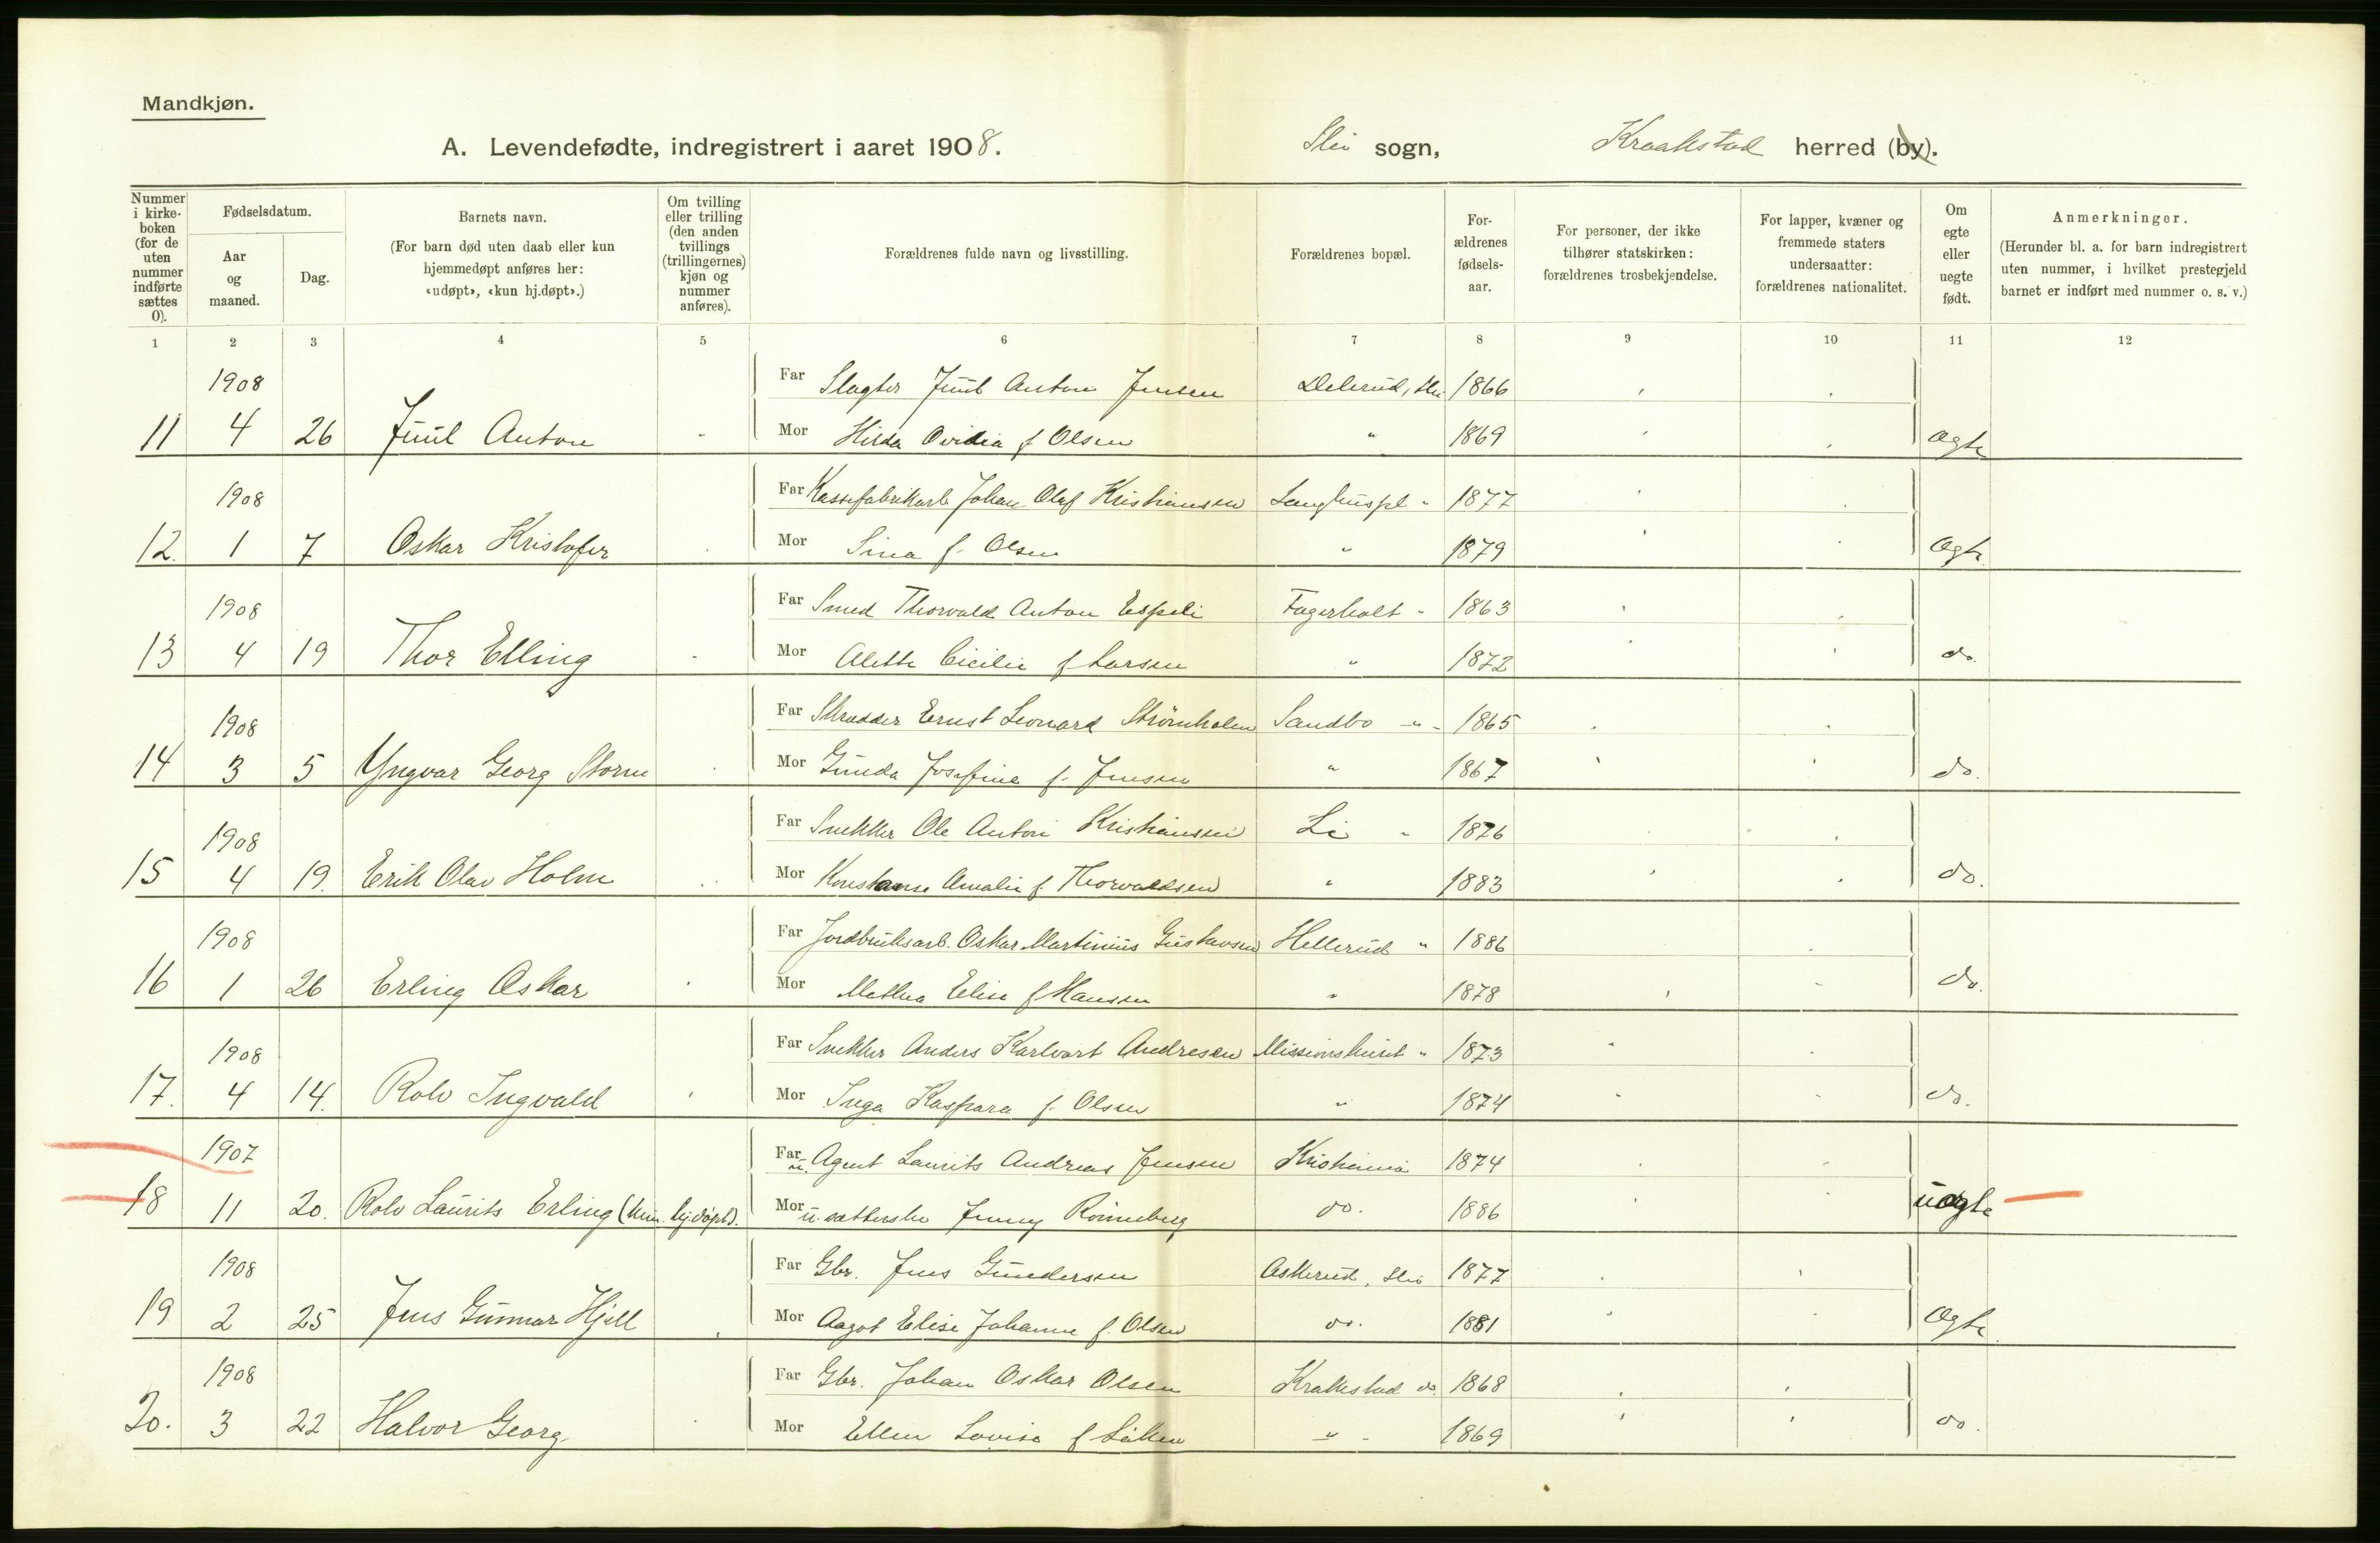 Mandkjøn.
A. Levendefødte, indregistrert i aaret 1908. Ski sogn, Kraakstad herred (by).
Nummer i kirkeboken (for de uten nummer indførte sættes 0).
Fødselsdatum.
Aar og maaned.
Dag.
Barnets navn.
(For barn død uten daab eller kun hjemmedøpt anføres her: «udøpt», «kun hj.døpt».)
Om tvilling eller trilling (den anden tvillings (trillingernes) kjøn og nummer anføres).
Forældrenes fulde navn og livsstilling.
Forældrenes bopæl.
Forældrenes fødselsaar.
For personer, der ikke tilhører statskirken: forældrenes trosbekjendelse.
For lapper, kvæner og fremmede staters undersaatter: forældrenes nationalitet.
Om egte eller uegte født.
Anmerkninger.
(Herunder bl. a. for barn indregistrert uten nummer, i hvilket prestegjeld barnet er indført med nummer o. s. v.)
1 2 3 4 5 6 7 8 9 10 11 12
1908 Far Slagter Juul Anton Jensen Ski 1866
11 4 26 Juul Anton Mor Hilda Ovidia f Olsen " 1869 Ægte
1908 Far Kassefabrikarb. Johan Olaf Kristiansen Langhuspl " 1877
12. 1 7 Oskar Kristofer Mor Sina f. Olsen " 1879 Ægte
1908 Far Smed Thorvald Anton Espeli Fagerholt " 1863
13 4 19 Thor Elling Mor Alette Cicilie f Larsen " 1872 do.
1908 Far Skrædder Ernst Leonard Strömholm Sandbo " 1865
14 3 5 Yngvar Georg Storm Mor Gunda Josefine f. Jensen " 1867 do.
1908 Far Snekker Ole Anton Kristiansen Li " 1876
15 4 19. Erik Olav Holm Mor Konstanse Amalie f. Thorvaldsen " 1883 do.
1908 Far Jordbruksarb. Oskar Martinius Gustavsen Hellerud " 1886
16 1 26 Erling Oskar Mor Mathea Elise f Hansen " 1878 do.
1908 Far Snekker Anders Karlvart Andresen Missionshuset " 1873
17. 4 14. Rolv Ingvald Mor Inga Kaspara f. Olsen " 1874 do.
1907 Far u. Agent Laurits Andreas Jensen Kristiania 1874
18 11 20. Rolv Laurits Erling (kun hj.døpt). Mor u. Jenny Rönneberg do. 1886 uægte
1908 Far Gbr. Jens Gundersen Askerud, Ski 1877
19 2 25 Jens Gunnar Hjell Mor Aagot Elise Johanne f. Olsen do. 1881 Ægte
1908 Far Gbr. Johan Oskar Olsen Krakstad do. 1868
20. 3 22 Halvor Georg Mor Ellen Lovise f " 1869 do.